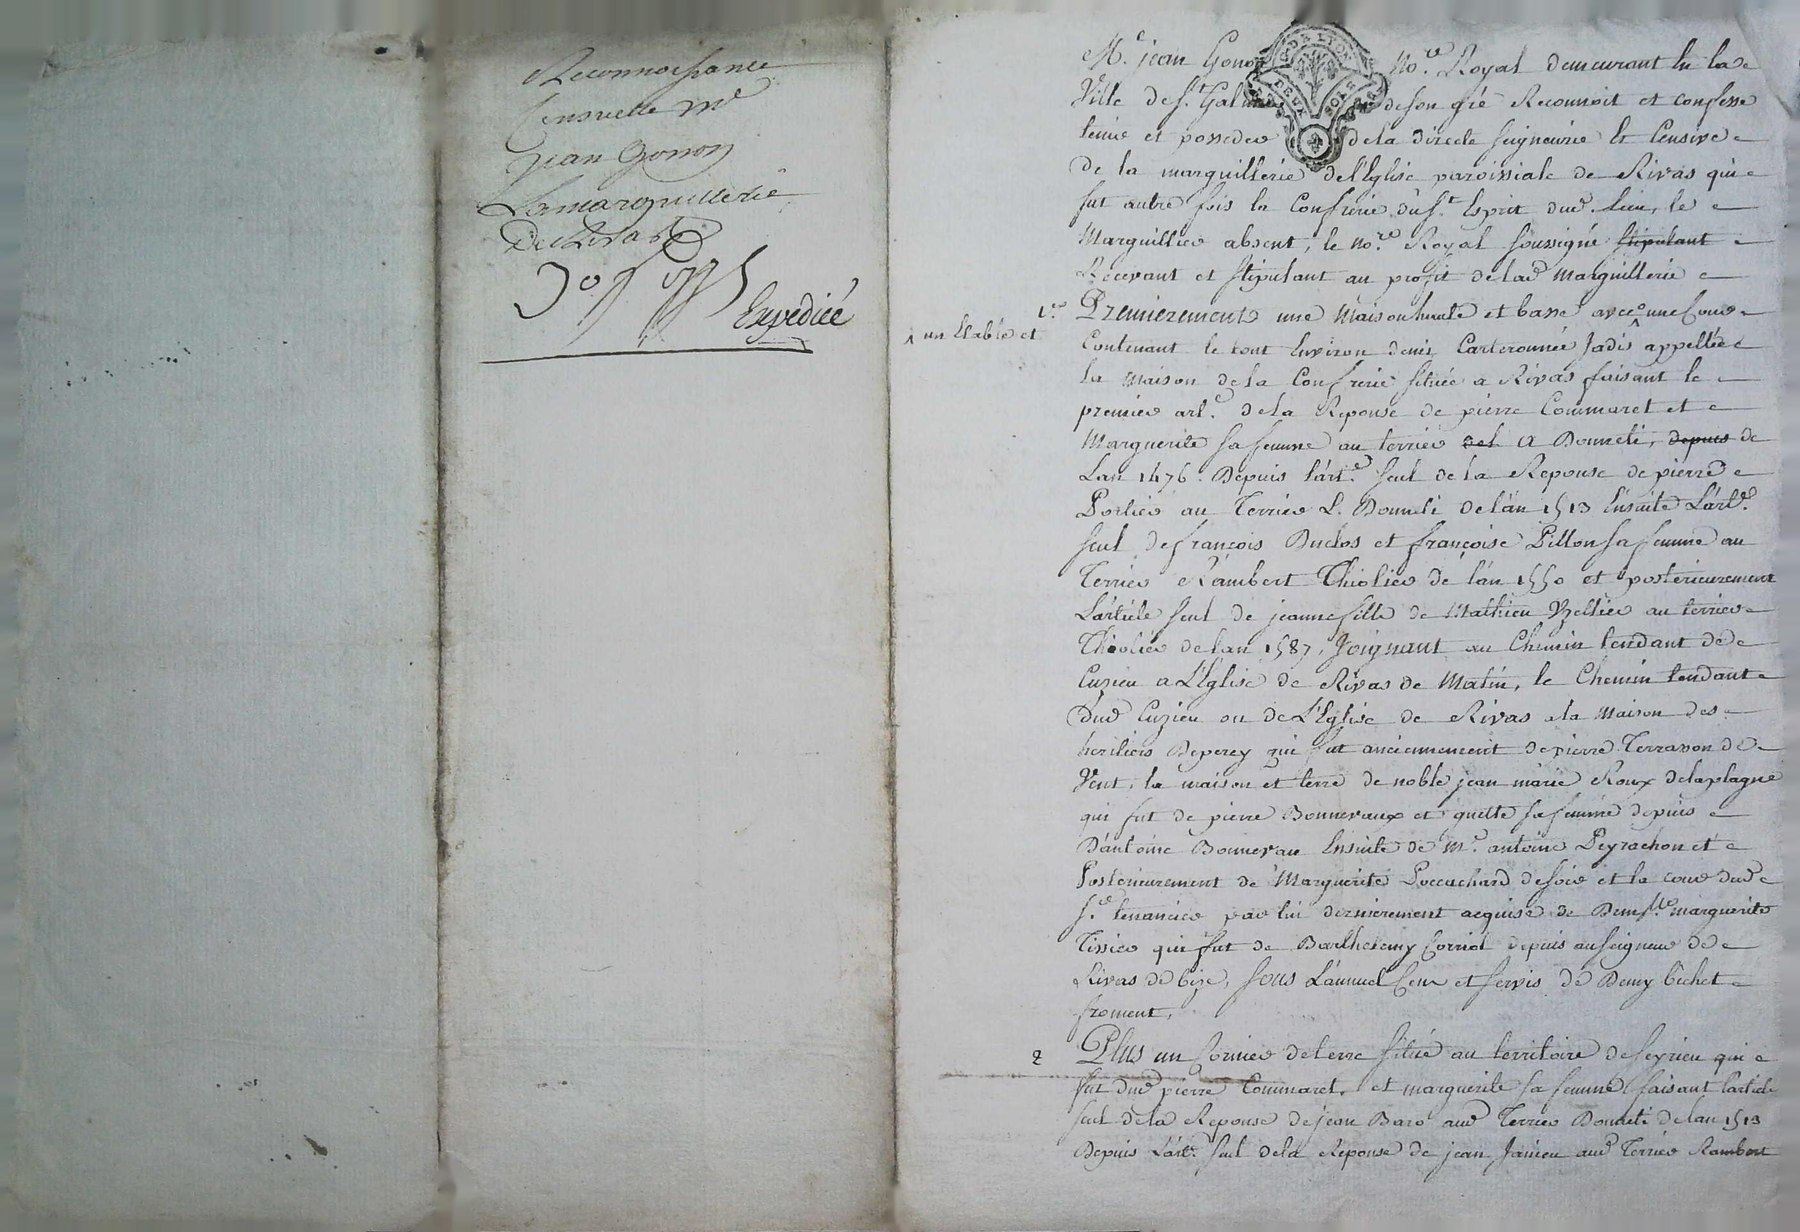 Reconnoissance
Censuelle Me
jean Gonon
La marguillerie
De Rivas
Expediée
Me. jean Gonon no.re Royal demeurant En la
Ville de St. Galmier de son gré Reconnoit et confesse
tenir et posseder de la directe seigneurie Et Censive
De la marguillerie de l'Eglise paroissiale de Rivas qui
fut autre fois la Confrerie du St. Esprit dud. lieu, le
Marguillier absent, le no.re Royal soussigné stipulant
Recevant et stipulant au profit de lad. marguillerie
1.er Premierement une Maison haute et basse avec une Cour
^ un Etable et
Contenant le tout Environ demi Carteronnée Jadis appellée
la maison de la Confrerie située a Rivas faisant le
premier art.e de la Reponse de pierre Commaret et
Marguerite sa femme au terrier A Donneti, depuis de
Lan 1476. Depuis l'art.e seul de la Reponse de pierre
Portier au Terrier L. Donneti de l'an 1513 Ensuite L'art.e
seul de françois Duclos et françoise Pillon sa femme au
Terrier Rambert Thiolier de l'an 1550 et posterieurement
L'article seul de jeanne fille de Mathieu Vzellier au terrier
Thiolier de lan 1587, Joignant au Chemin tendant de
Cuzieu a L'Eglise de Rivas de Matin, le Chemin tendant
dud. Cuzieu ou de L'Eglise de Rivas a la Maison des
heritiers Deperey qui fut anciennement de pierre Terrason de
Vent, la maison et terre de noble jean marie Roux delaplagne
qui fut de pierre Bonnevaux et guette sa femme depuis
D'antoine Bonnevau Ensuite de Mr. antoine Peyrachon et
Posterieurement de Marguerite Poccachard de soir et la cour dud.
Sr. tenancier par lui dernierement acquise de Demslle marguerite
Tissier qui fut de Barthelemy Corriol depuis au seigneur de
Rivas de bize, sous L'annuel Cens et servis de Demy bichet
froment,
2 Plus un Cornier de terre situé au territoire de seyrieu qui
fut dud. pierre Commaret, et marguerite sa femme faisant l'article
seul de la Reponse de jean Baro aud. Terrier Donneti de lan 1513
Depuis L'art.e seul de la Reponse de jean Janieu aud. Terrier Rambert